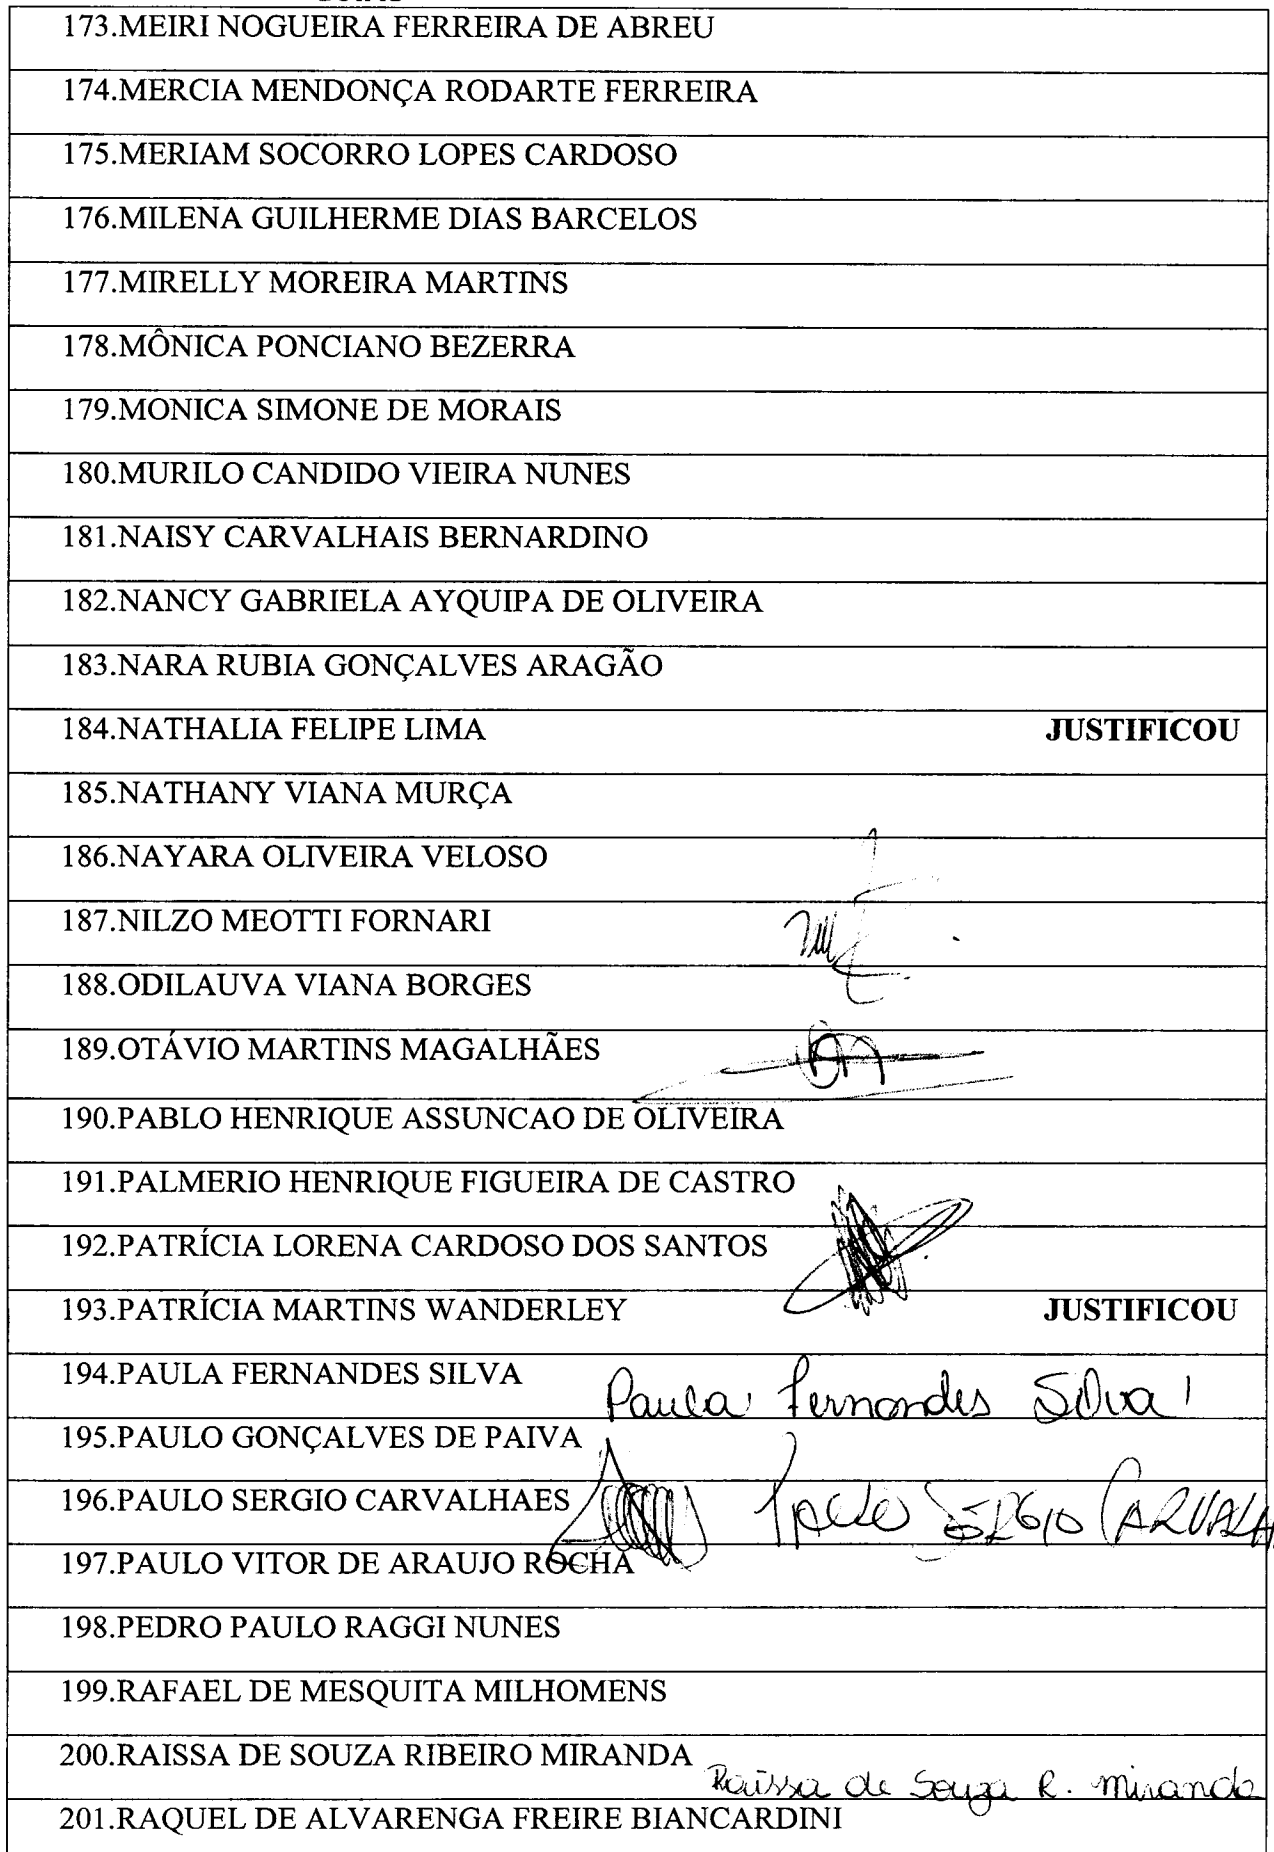 173.MEIRI NOGUEIRA FERREIRA DE ABREU
174.MERCIA MENDONÇA RODARTE FERREIRA
175.MERIAM SOCORRO LOPES CARDOSO
176.MILENA GUILHERME DIAS BARCELOS
177.MIRELLY MOREIRA MARTINS
178.MÔNICA PONCIANO BEZERRA
179.MONICA SIMONE DE MORAIS
180.MURILO CANDIDO VIEIRA NUNES
181.NAISY CARVALHAIS BERNARDINO
182.NANCY GABRIELA AYQUIPA DE OLIVEIRA
183.NARA RUBIA GONÇALVES ARAGÃO
184.NATHALIA FELIPE LIMA JUSTIFICOU
185.NATHANY VIANA MURÇA
186.NAYARA OLIVEIRA VELOSO
187.NILZO MEOTTI FORNARI
188.ODILAUVA VIANA BORGES
189.OTÁVIO MARTINS MAGALHÃES
190.PABLO HENRIQUE ASSUNCAO DE OLIVEIRA
191.PALMERIO HENRIQUE FIGUEIRA DE CASTRO
192.PATRÍCIA LORENA CARDOSO DOS SANTOS
193.PATRÍCIA MARTINS WANDERLEY JUSTIFICOU
194.PAULA FERNANDES SILVA Paula Fernandes Silva
195.PAULO GONÇALVES DE PAIVA
196.PAULO SERGIO CARVALHAES Paulo SÉRGIO CARVALH
197.PAULO VITOR DE ARAUJO ROCHA
198.PEDRO PAULO RAGGI NUNES
199.RAFAEL DE MESQUITA MILHOMENS
200.RAISSA DE SOUZA RIBEIRO MIRANDA Raissa de Souza R. Miranda
201.RAQUEL DE ALVARENGA FREIRE BIANCARDINI